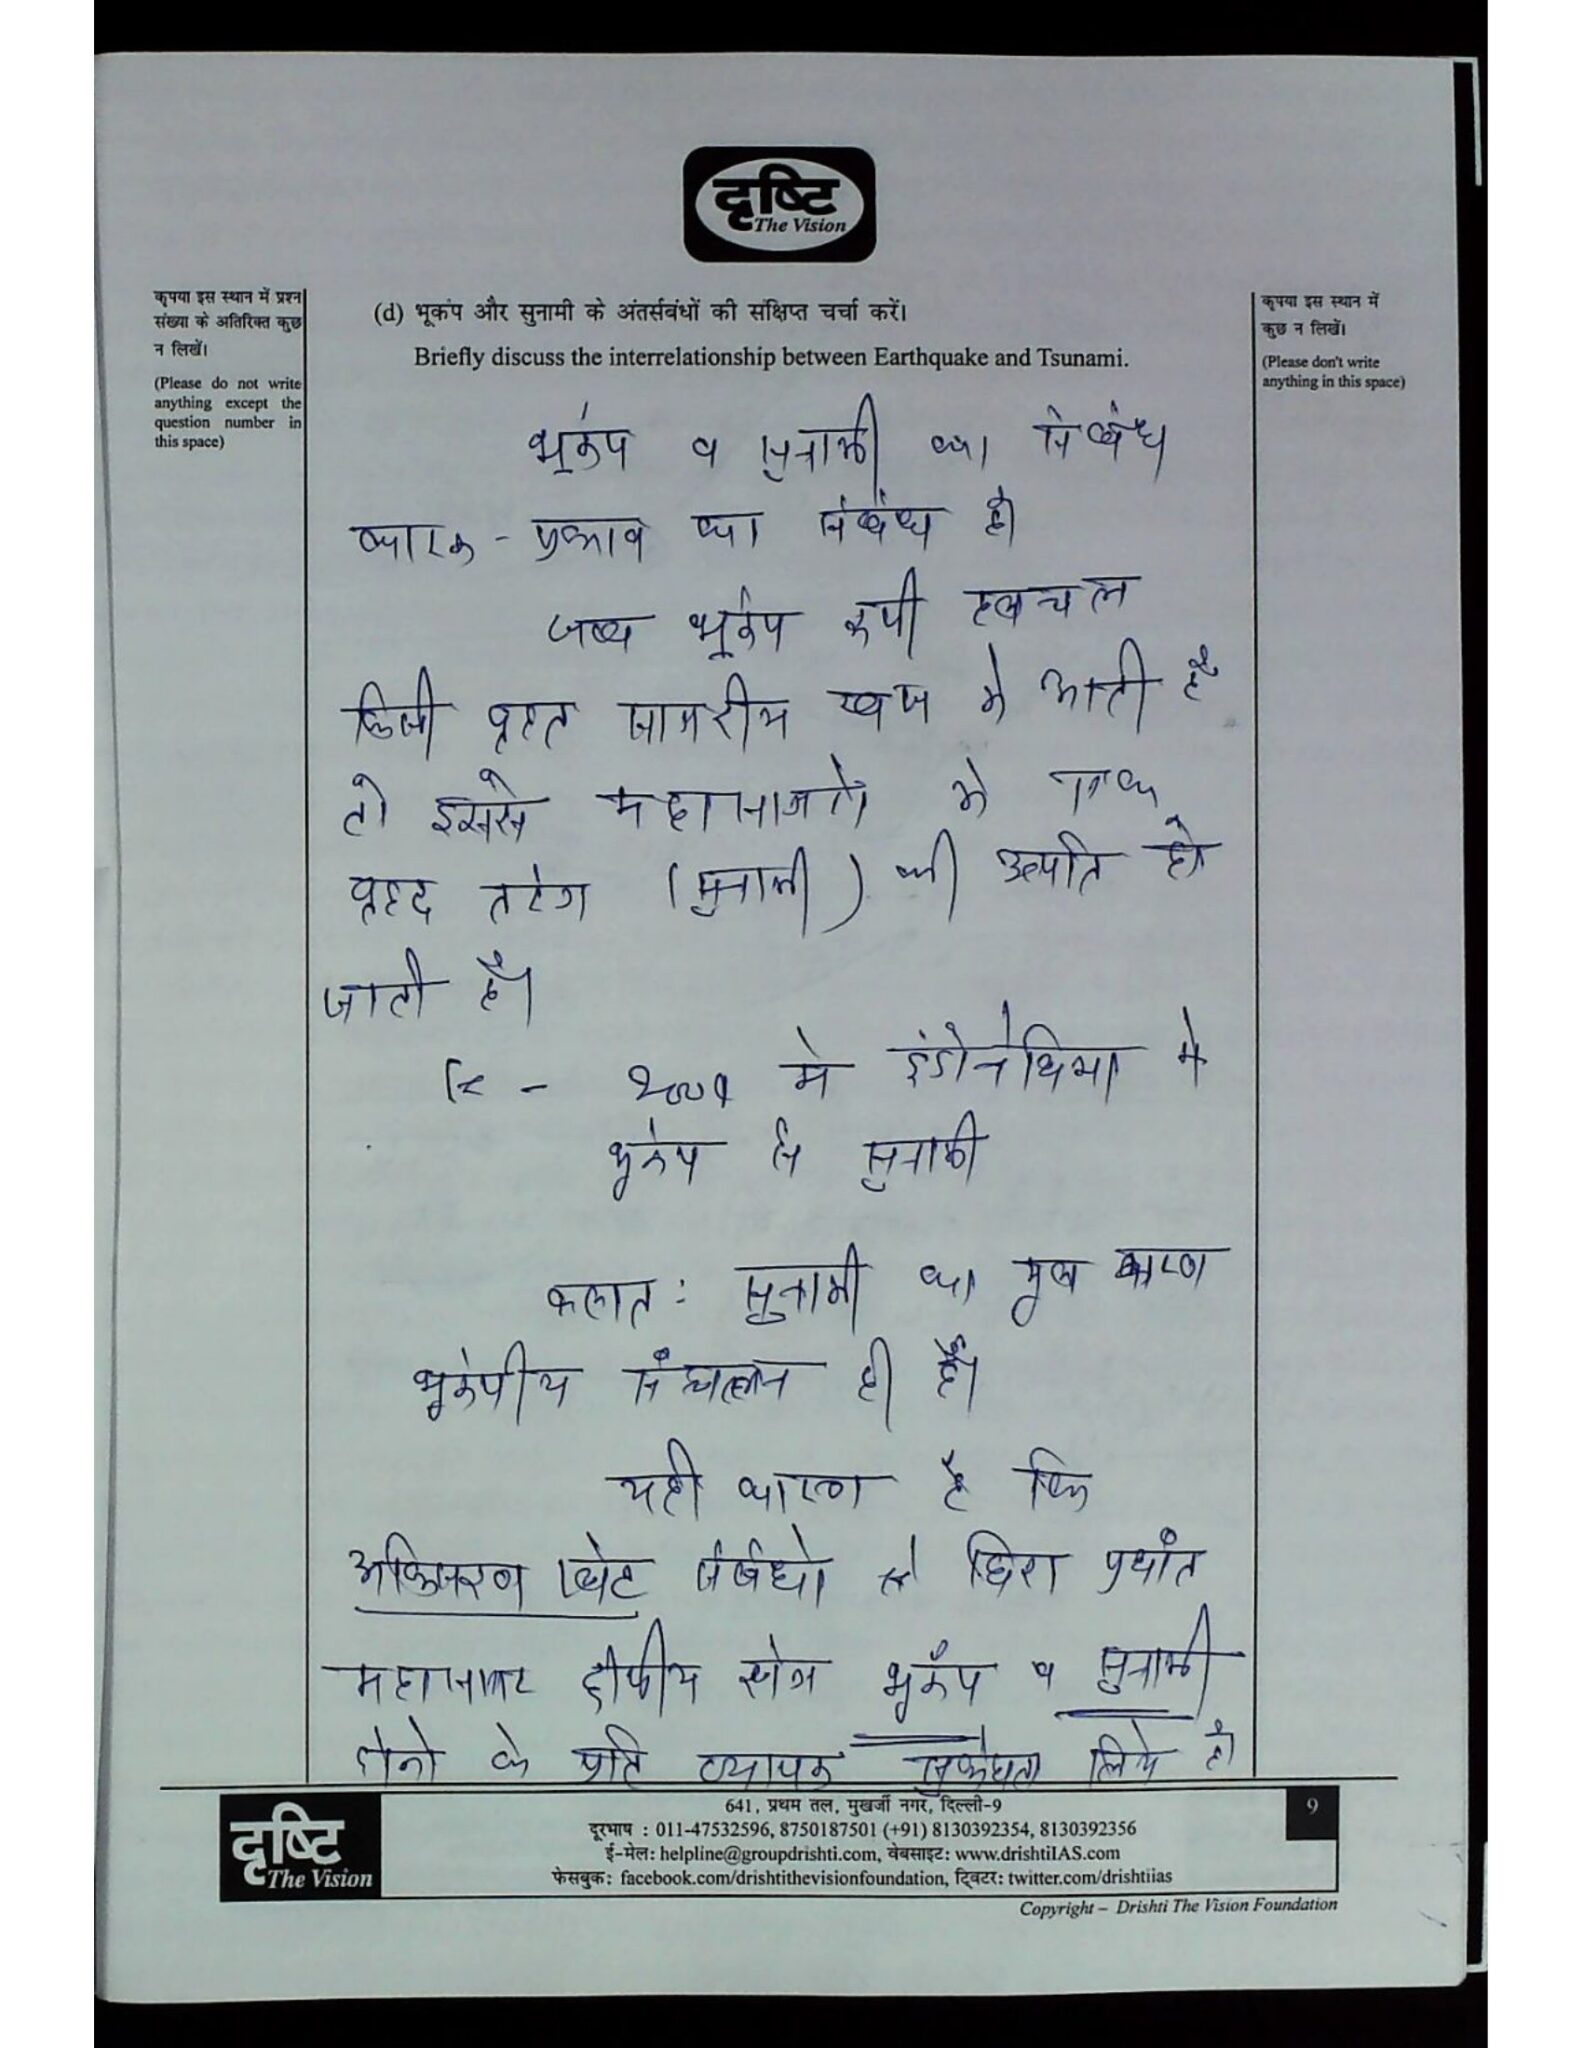 दृष्टि
The Vision
कृपया इस स्थान में प्रश्न
संख्या के अतिरिक्त कुछ
न लिखें।
(Please do not write
anything except the
question number in
this space)
(d) भूकंप और सुनामी के अंतर्संबंधों की संक्षिप्त चर्चा करें।
Briefly discuss the interrelationship between Earthquake and Tsunami.
कृपया इस स्थान में
कुछ न लिखें।
(Please don't write
anything in this space)
भूकंप व सुनामी का संबंध
कारक - प्रभाव का संबंध है।
जब भूकंप रूपी हलचल
किसी वृहत सागरीय में आती है
तो इससे महासागरों में एक
वृहद तरंग (सुनामी) की उत्पति हो
जाती है।
2004 में इंडोनेशिया में
भूकंप से सुनामी
फलत: सुनामी का मूल कारण
भूकंपीय संचलन ही है।
यही कारण है कि
अभिसरण प्लेट संबंधों से घिरा प्रशांत
महासागर द्वीपीय क्षेत्र भूकंप व सुनामी
दोनों के प्रति व्यापक सुभेद्यता लिये है।
दृष्टि
The Vision
641, प्रथम तल, मुखर्जी नगर, दिल्ली-9
दूरभाष : 011-47532596, 8750187501 (+91) 8130392354, 8130392356
ई-मेल: helpline@groupdrishti.com, वेबसाइट: www.drishtiIAS.com
फेसबुक: facebook.com/drishtithevisionfoundation, ट्विटर: twitter.com/drishtiias
9
Copyright – Drishti The Vision Foundation